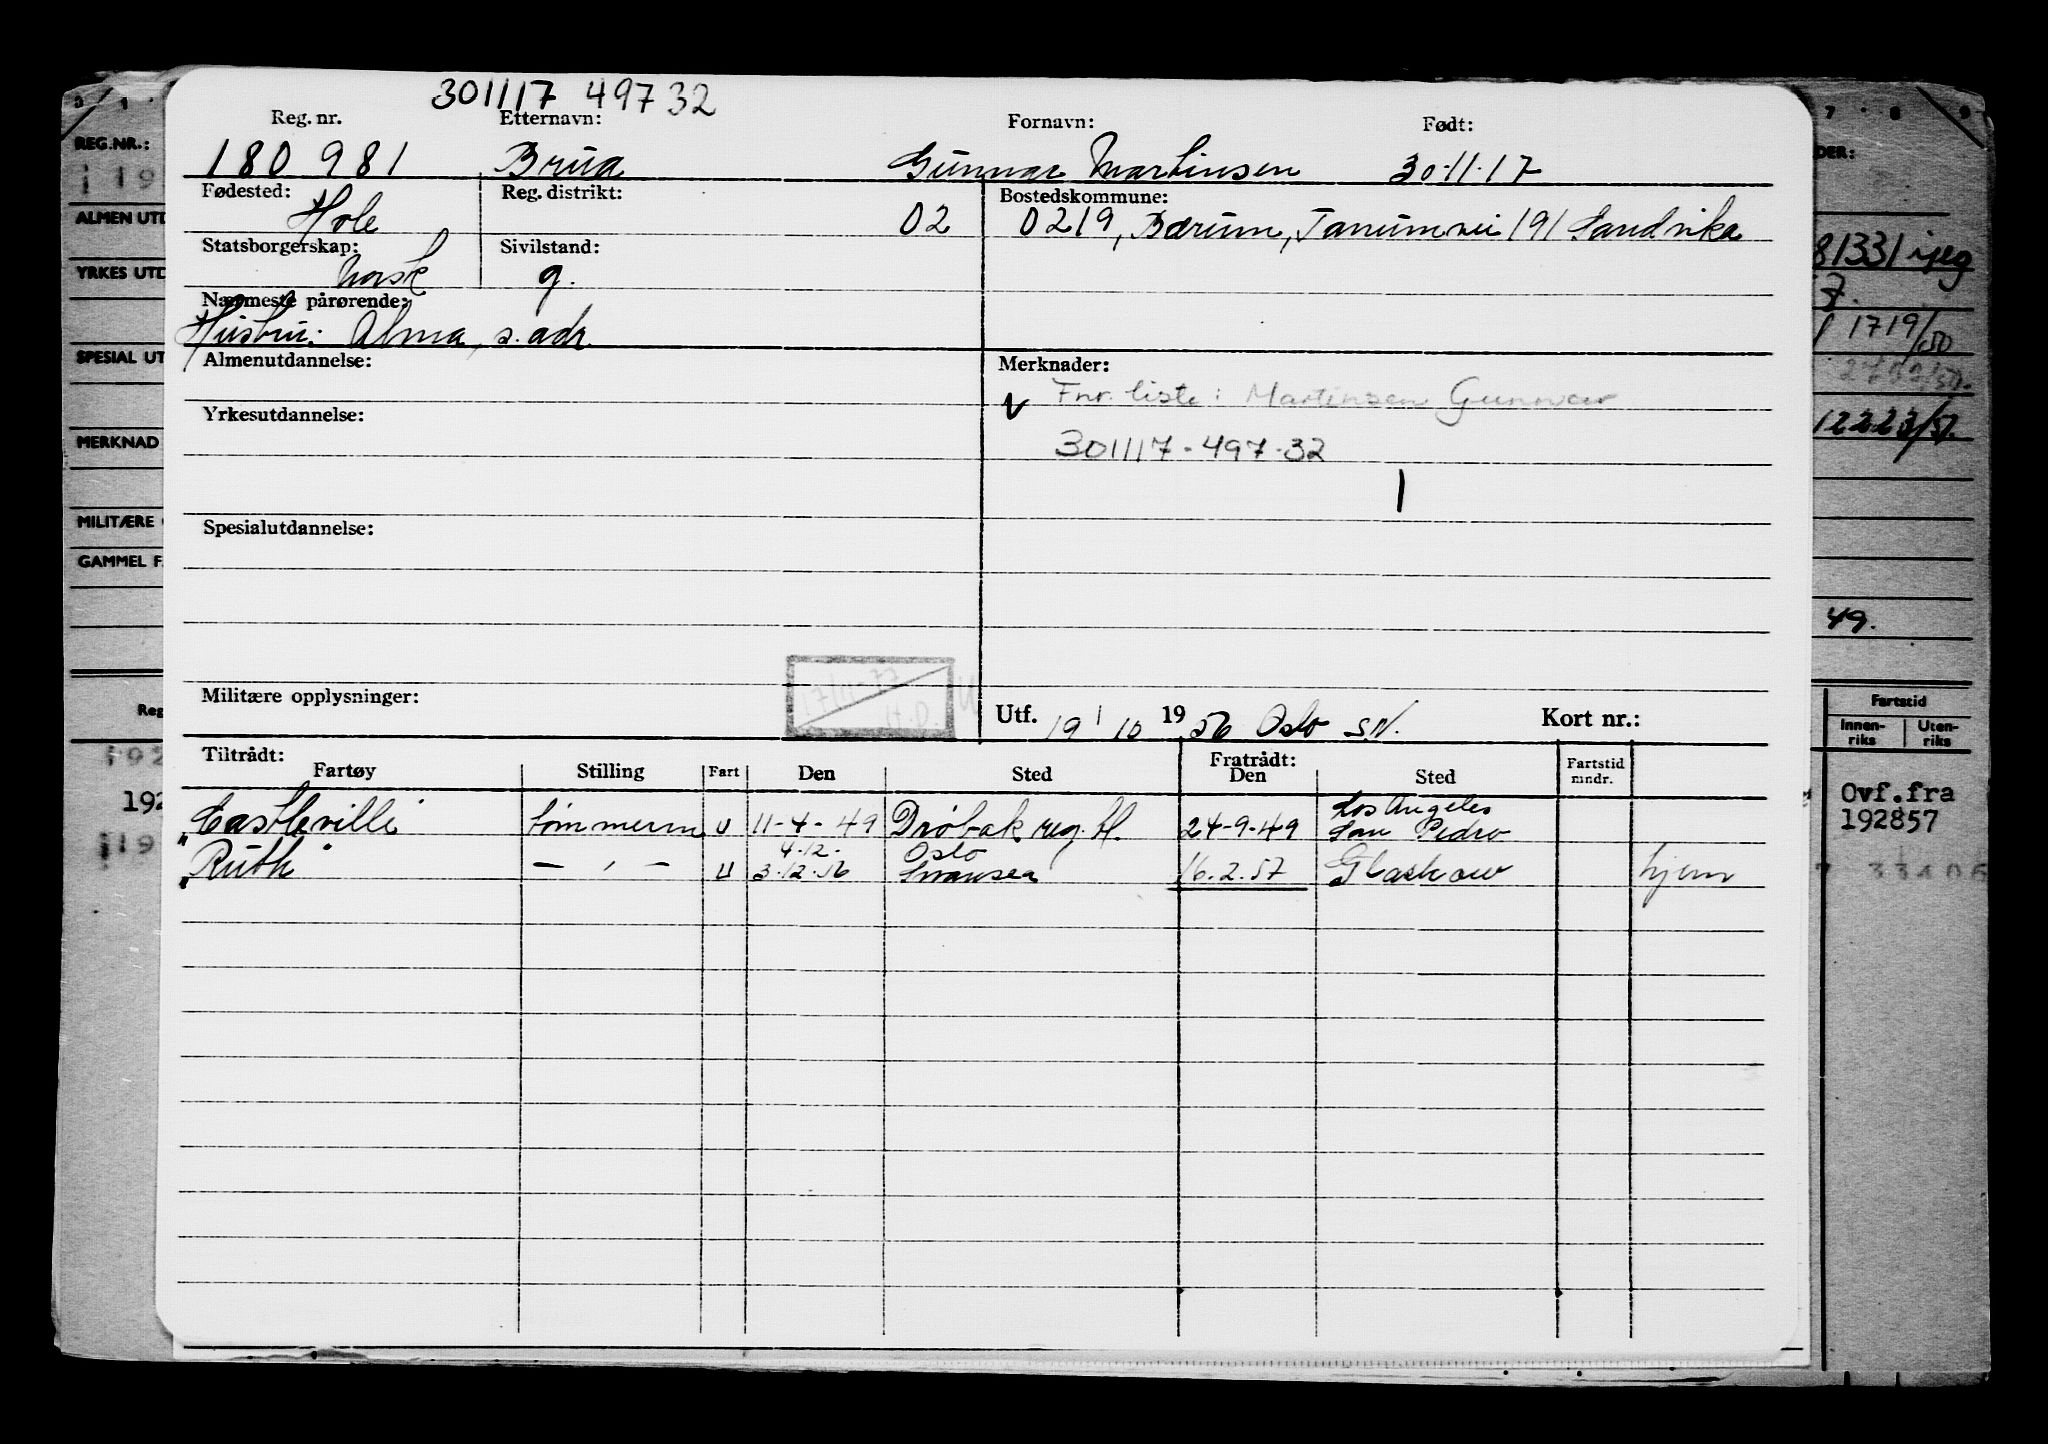 301117 49732
Reg. nr. Etternavn: Fornavn: Født:
180 981 Brua Gunnar Martinsen 30.11.17
Fødested: Reg. distrikt: Bostedskommune:
Hole 02 0219, Bærum, Tanumvei 191 Sandvika
Statsborgerskap: Sivilstand:
norsk g.
Nærmeste pårørende:
Hustru: Alma, s. adr.
Almenutdannelse: Merknader:
V Fnr. liste: Martinsen Gunnar
Yrkesutdannelse:
301117-497-32
Spesialutdannelse:
17/4-77
H.D.
Militære opplysninger:
Utf. 19/10 1956 Oslo s.k. Kort nr.:
Tiltrådt: Fratrådt:
Fartøy Stilling Fart Den Sted Den Sted Fartstid mndr.
"Castleville" tømmerm U 11-4-49 Drøbak reg. bl. 24-9-49 Los Angeles San Pedro
4.12. Oslo
"Ruth" — , — U 3.12.56 Swansea 16.2.57 Glaskow hjem
REG.NR.:
ALMEN UTD
YRKES UTD
SPESIAL UT
MERKNAD
MILITÆRE
GAMMEL F
Reg
192
DER:
81331
7.
1719/50
12223/57.
49.
Fartstid
Innen-riks Uten-riks
Ovf.fra
192857
33406